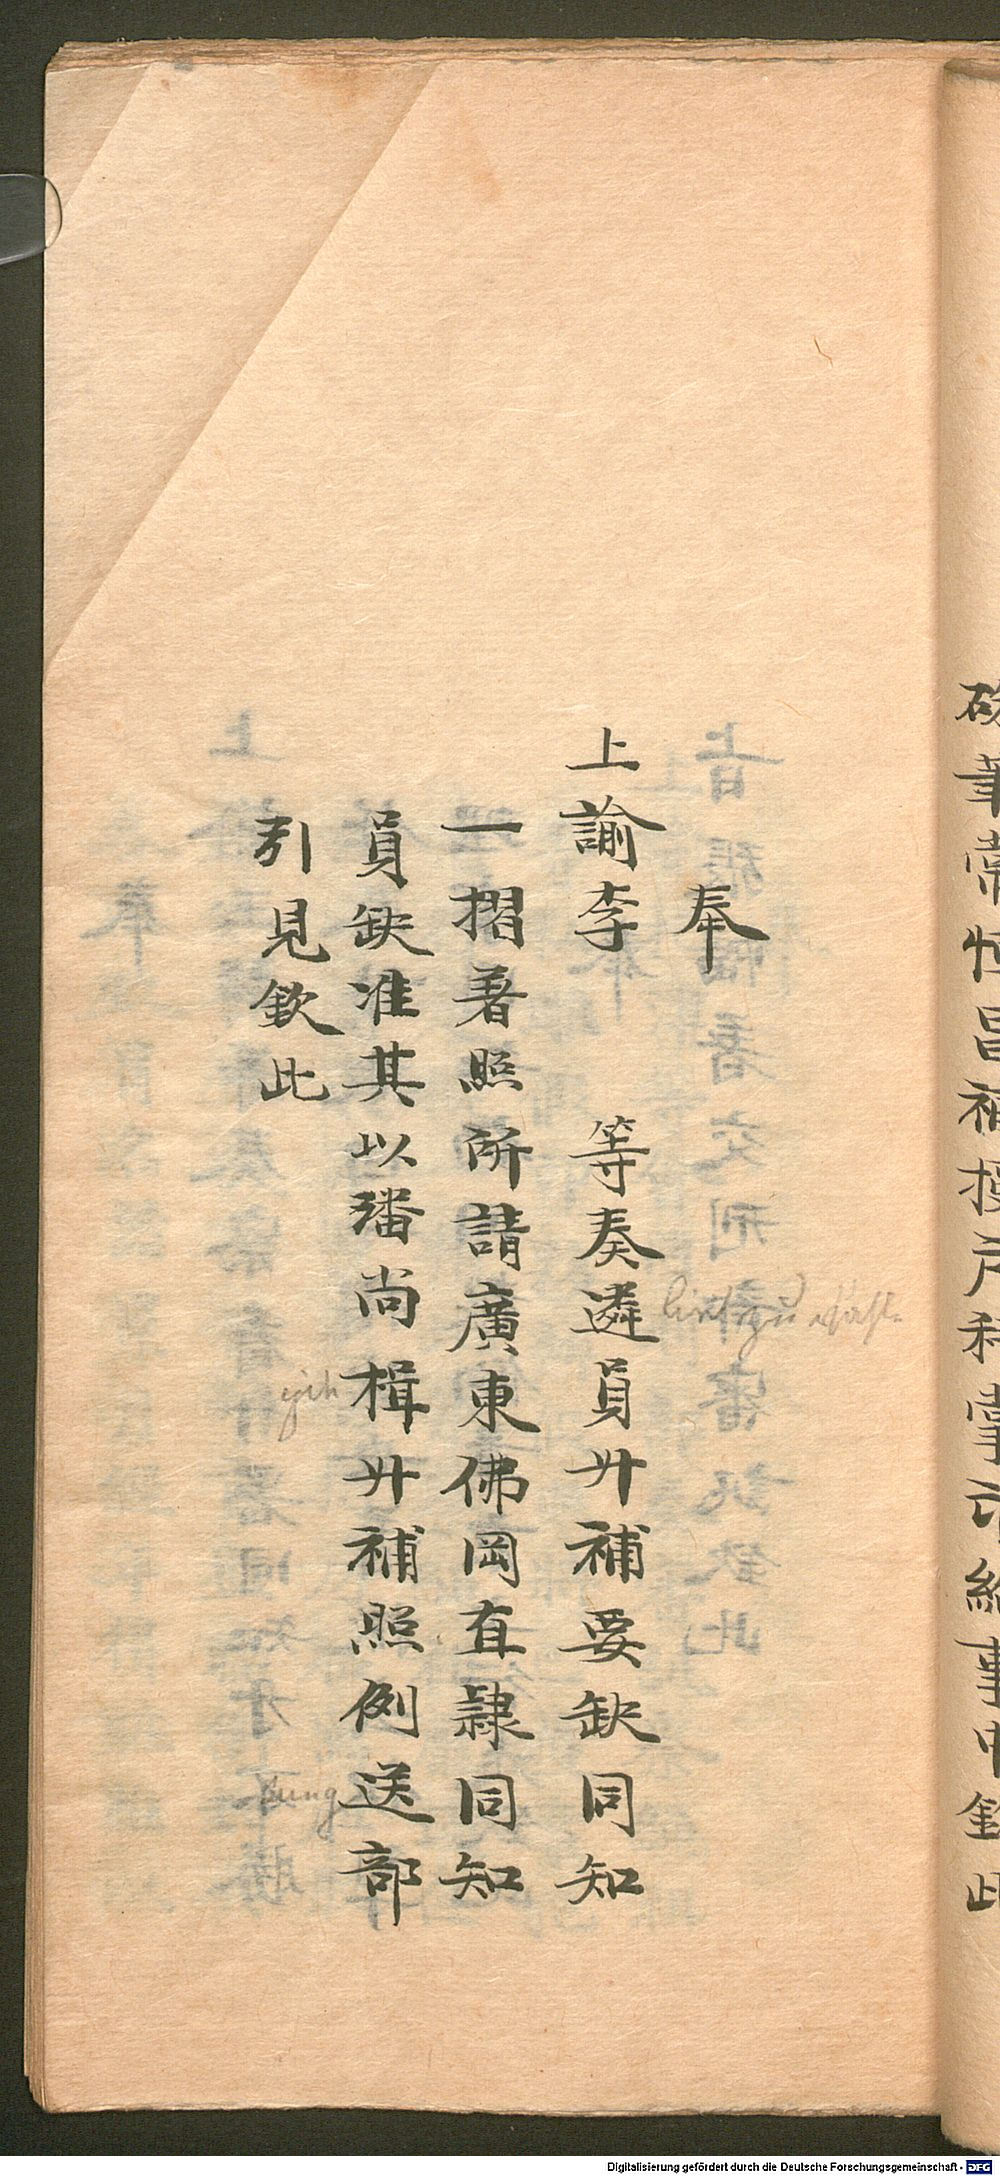 硃筆常恒昌補授戶科掌印給事中欽此
奉
上諭李 等奏遴員升補要缺同知
一摺著照所請廣東佛岡直隸同知
員缺准其以潘尚楫升補照例送部
引見欽此
yih
sung
Digitalisierung gefördert durch die Deutsche Forschungsgemeinschaft - DFG